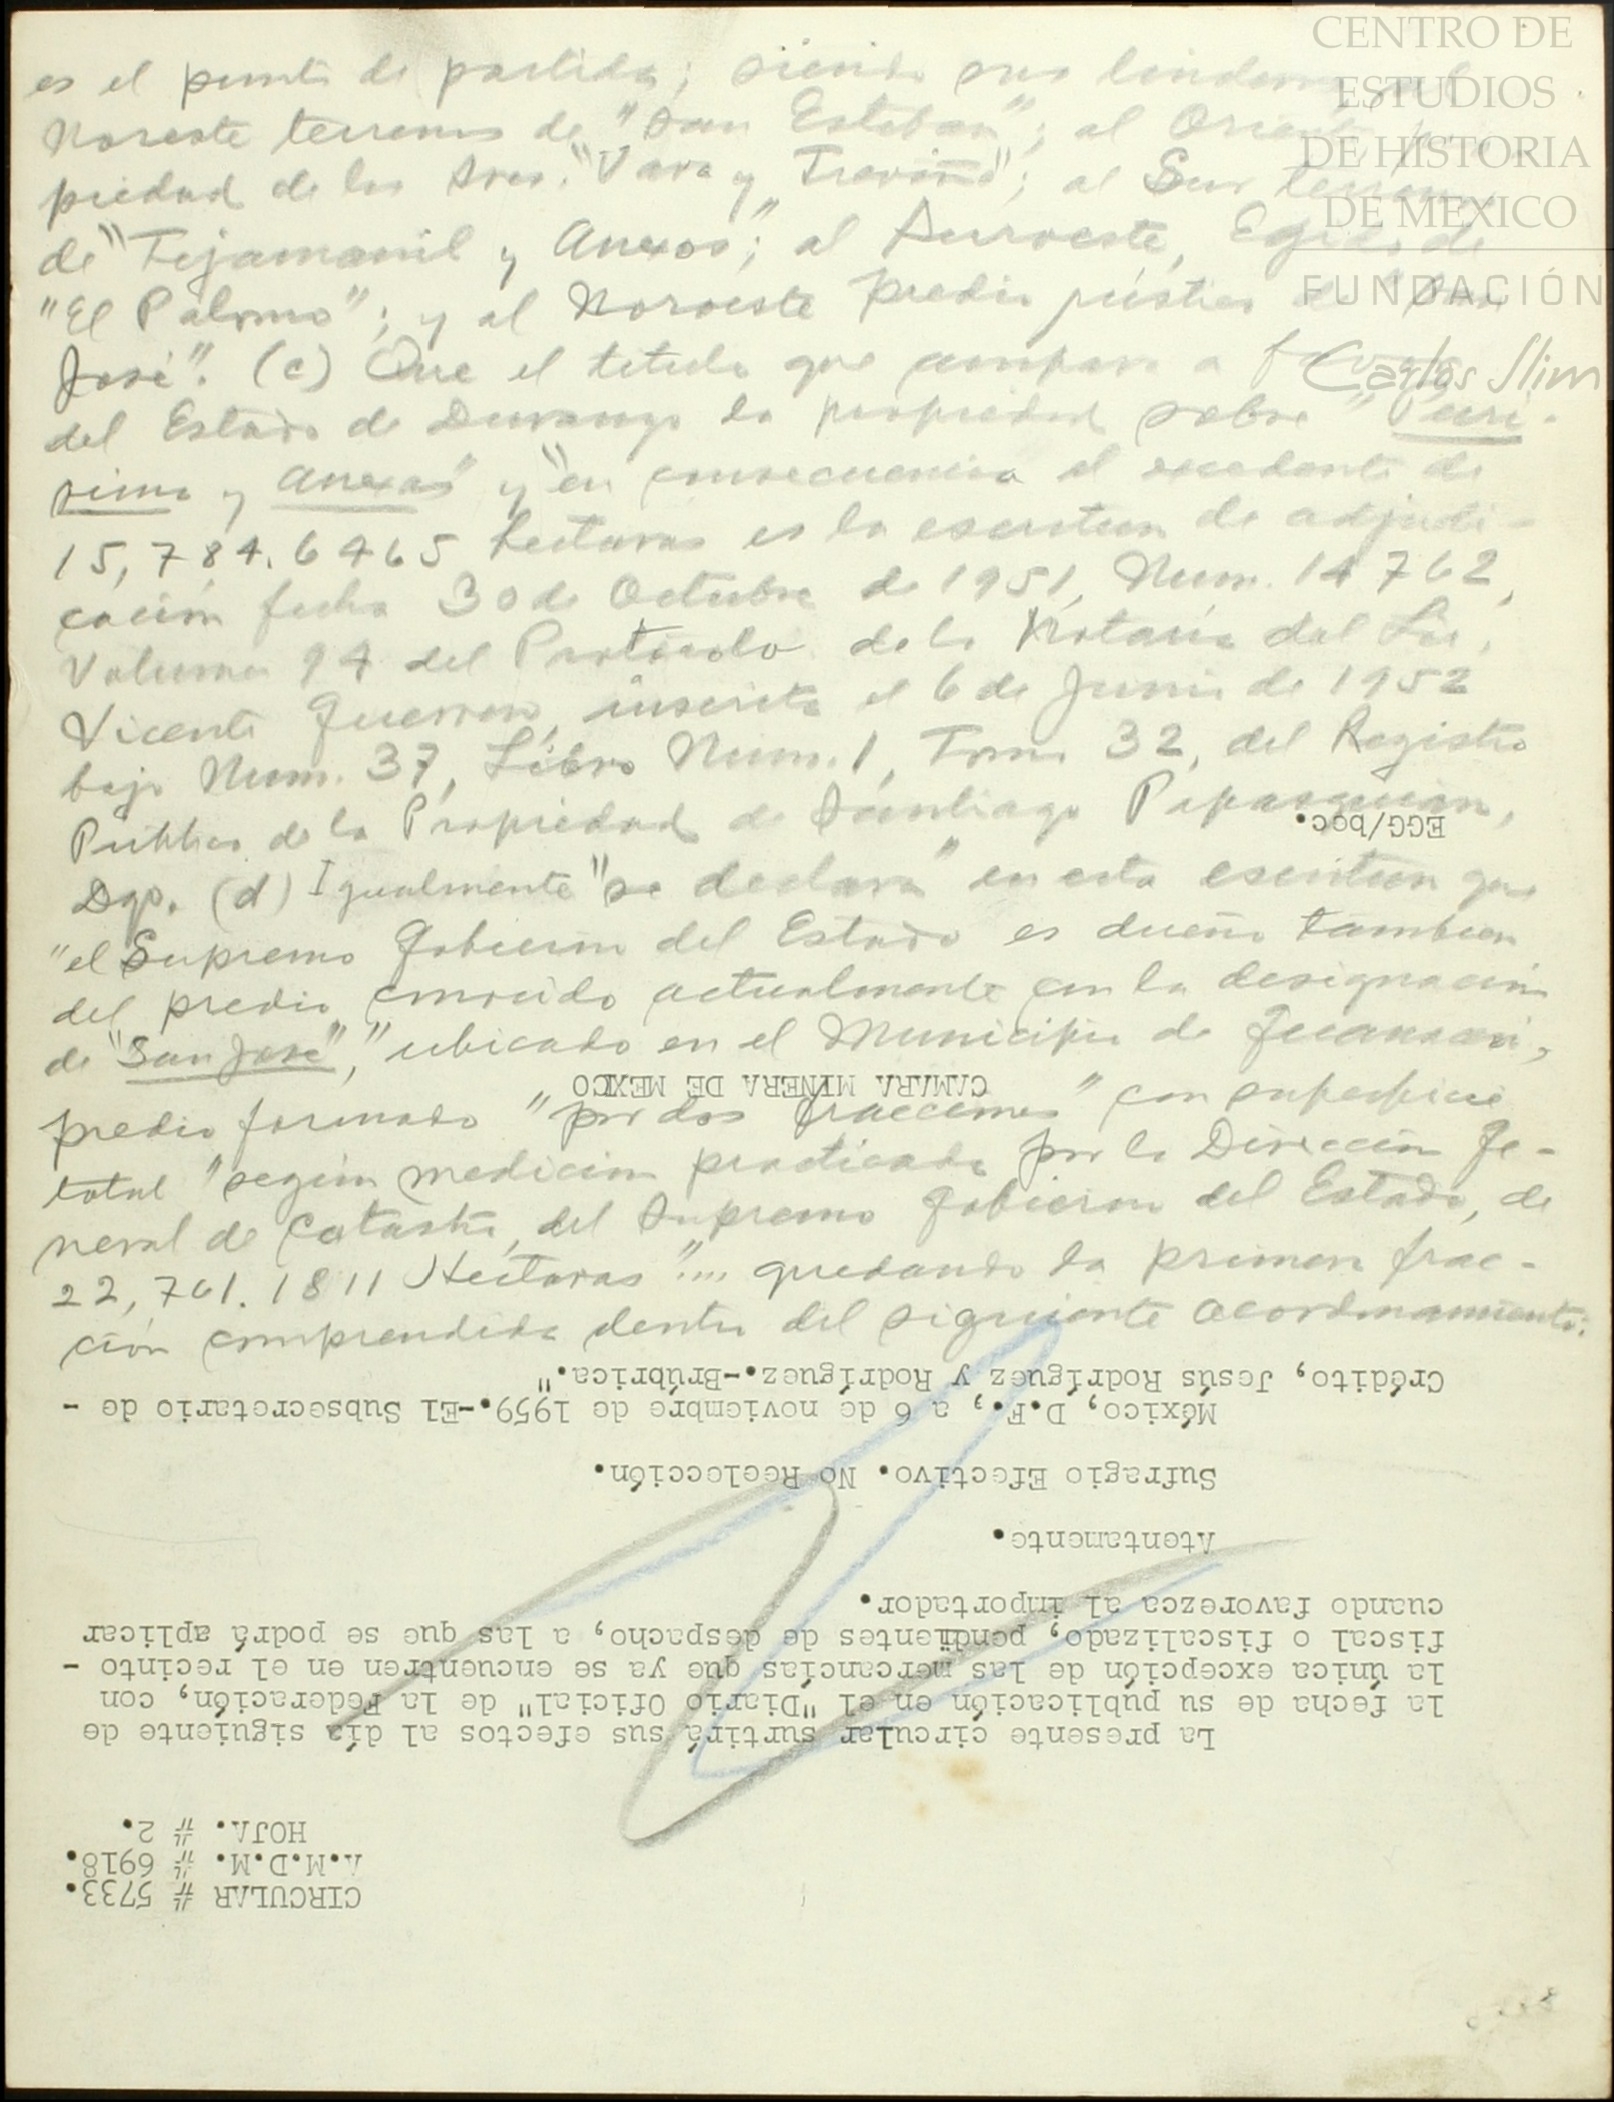 es el punto de partida; siendo sus linderos: al
Noreste terrenos de "San Esteban"; al Oriente pro-
piedad de los Sres. "Vara y Treviño"; al Sur terrenos
de "Tejamanil y Anexos"; al Suroeste, Egido de
"El Palomo"; y al Noroeste predio rústico de "San
José". (c) Que el título que ampara a favor
del Estado de Durango la propiedad sobre "
y Anexas" y "en consecuencia el excedente de
15,784.6465 hectáreas es la escritura de adjudi-
cación fecha 30 de Octubre de 1951, Num. 14762,
Volumen 94 del Protocolo de la Notaría del Lic.
Vicente Guerrero, inscrita el 6 de Junio de 1952
bajo Num. 37, Libro Núm. 1, Tomo 32, del Registro
Público de la Propiedad de Santiago Papasquiaro,
Dgo. (d) Igualmente "se declara" en esta escritura que
"el Supremo Gobierno del Estado es dueño también
del predio conocido actualmente con la designación
de "San José"," ubicado en el Municipio de Guanaceví,
predio formado "por dos fracciones" con superficie
total "según medición practicada por la Dirección Ge-
neral de Catastro, del Supremo Gobierno del Estado, de
22,761.1811 Hectáreas".... quedando la primera frac-
ción comprendida dentro del siguiente acordonamiento:
CIRCULAR # 5733.
A.M.D.M. # 6918.
HOJA. # 2.
La presente circular surtirá sus efectos al día siguiente de
la fecha de su publicación en el "Diario Oficial" de la Federación, con
la única excepción de las mercancías que ya se encuentren en el recinto -
fiscal o fiscalizado, pendientes de despacho, a las que se podrá aplicar
cuando favorezca al importador.
Atentamente.
Sufragio Efectivo. No Reelección.
México, D.F., a 6 de noviembre de 1959.-El Subsecretario de -
Crédito, Jesús Rodríguez y Rodríguez.-Brúbrica."
CAMARA MINERA DE MEXICO
EGG/bgc.
CENTRO DE
ESTUDIOS
DE HISTORIA
DE MEXICO
FUNDACIÓN
Carlos Slim